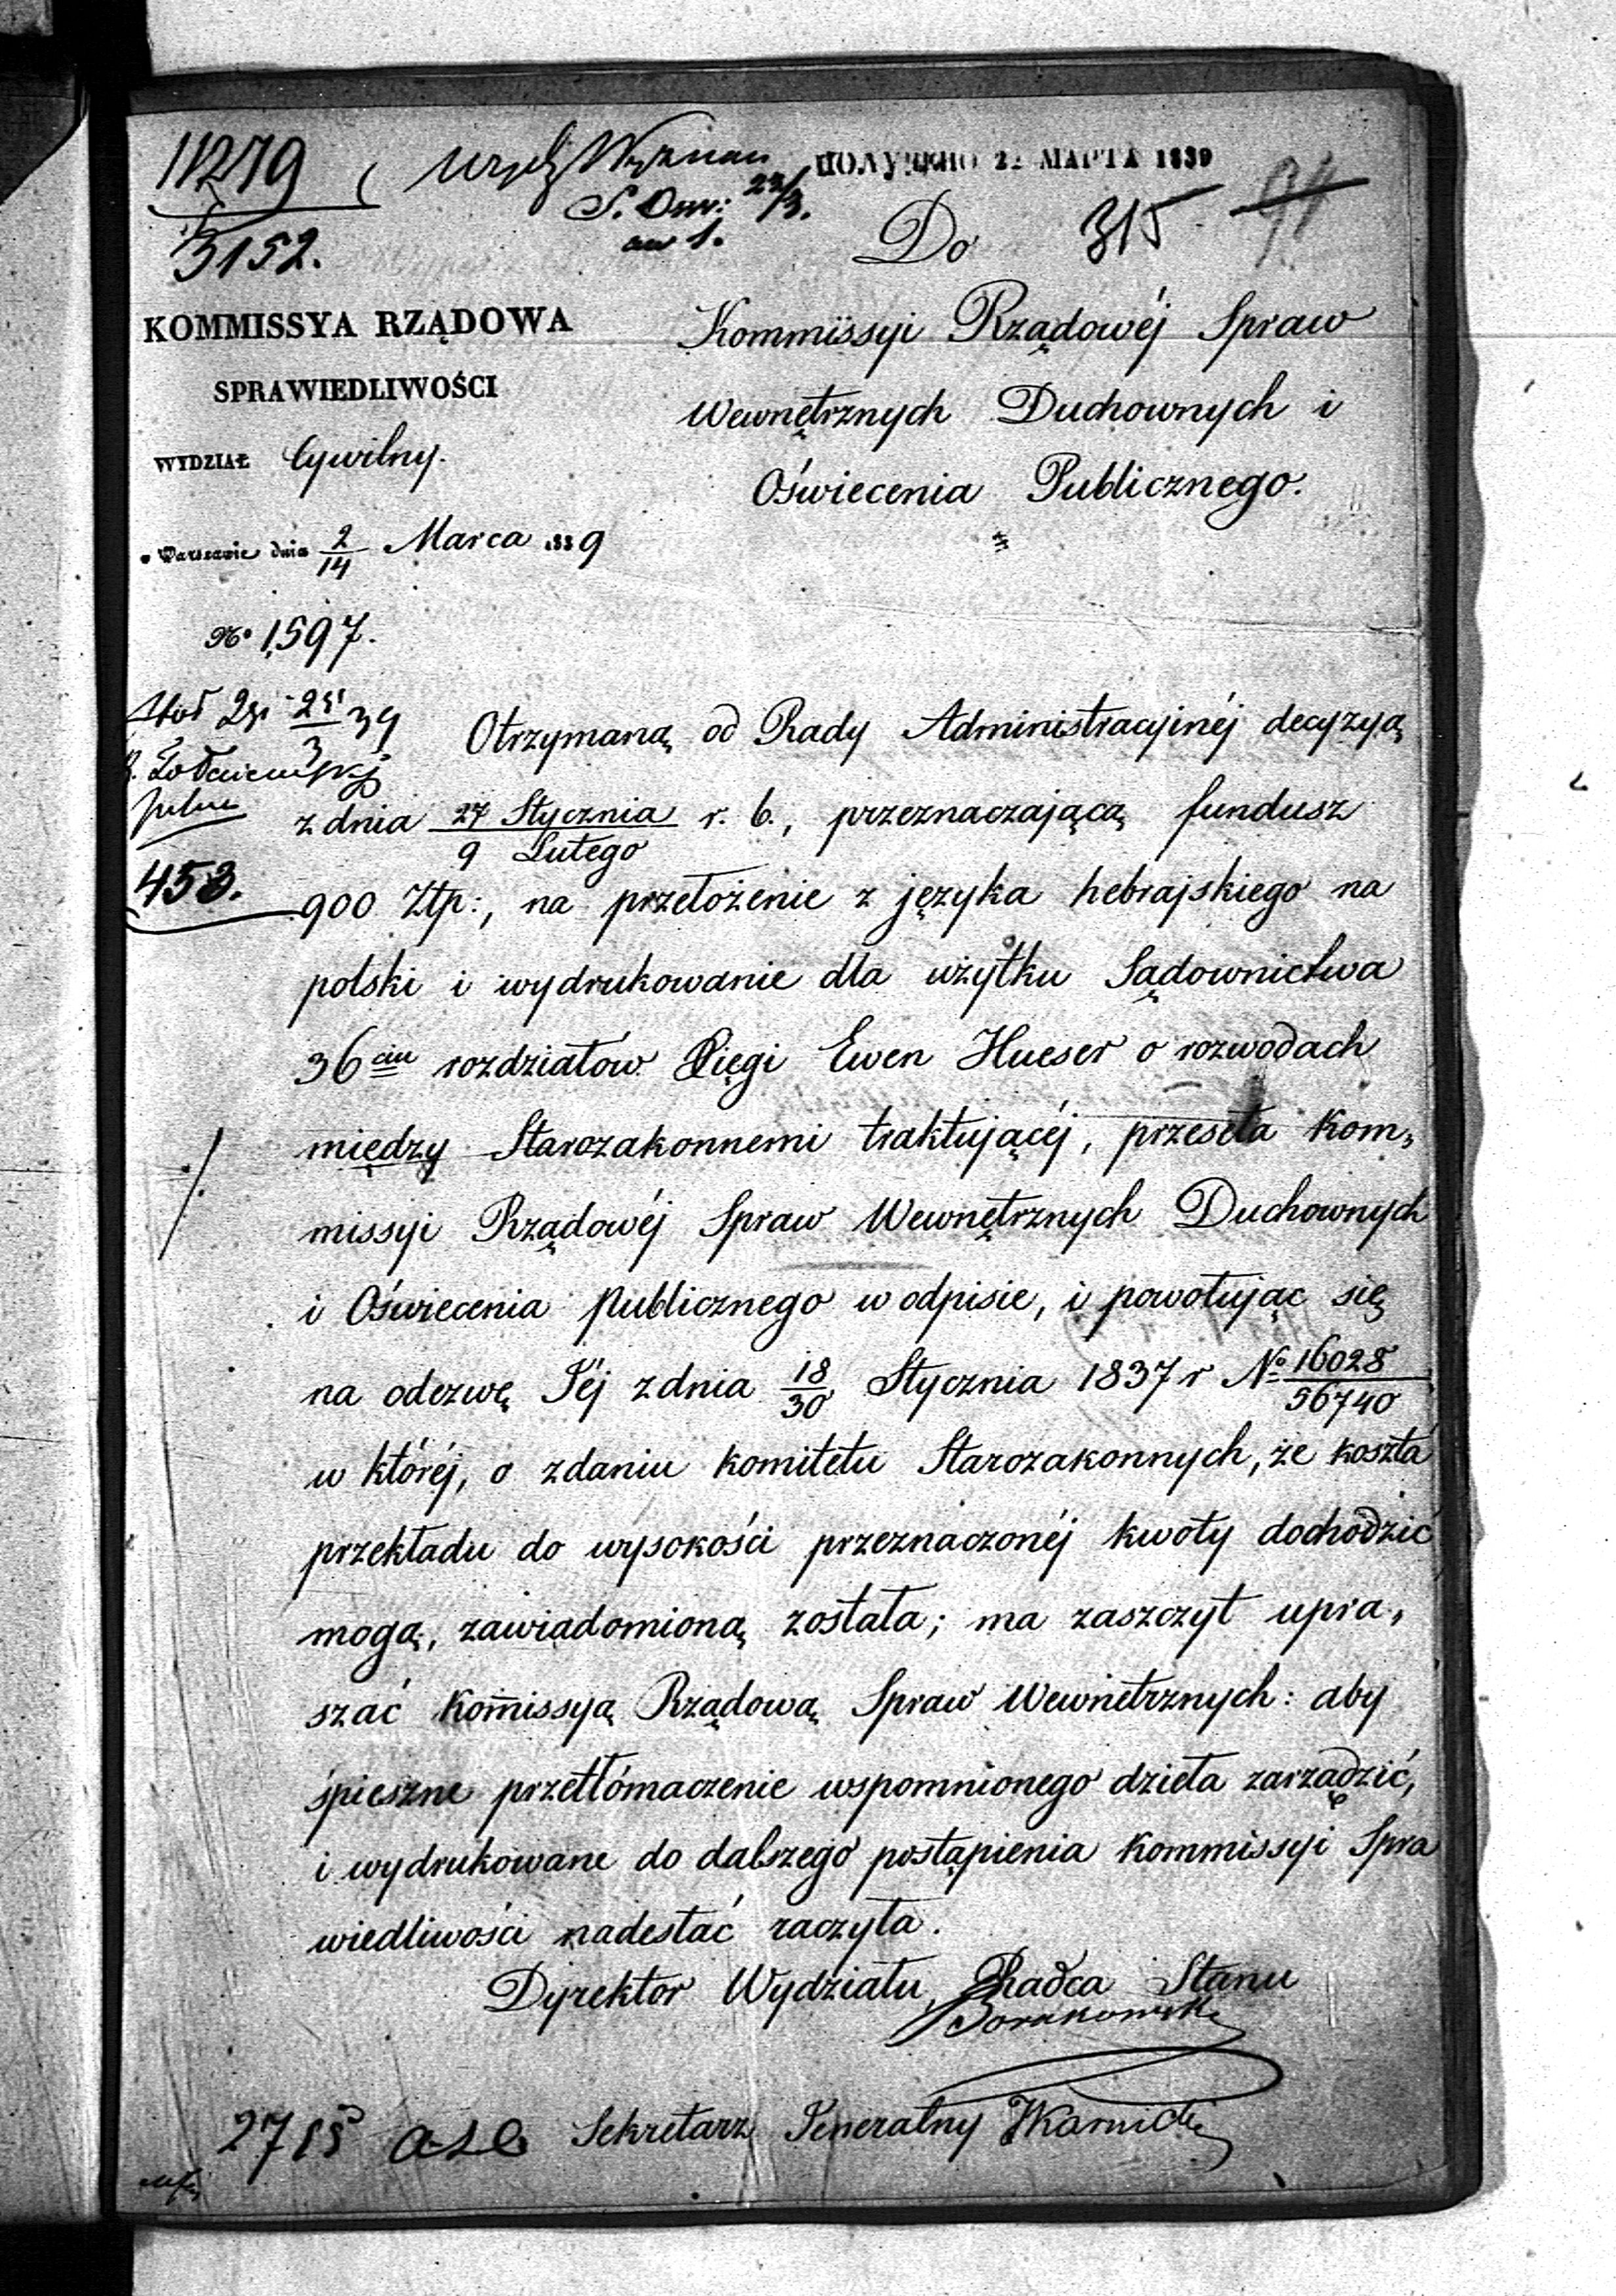 11279
3152.
22/3.
ПОЛУЧЕНО 22 МАРТА 1839
Do 315
KOMMISSYA RZĄDOWA
SPRAWIEDLIWOŚCI
WYDZIAŁ Cywilny.
w Warszawie dnia 2/14 Marca 1839
No 1,597.
Kommissyi Rządowéj Spraw
Wewnętrznych Duchownych i
Oświecenia Publicznego.
453.
Otrzymaną od Rady Administracyinéj decyzyą
z dnia 27 Stycznia/9 Lutego r. b., przeznaczającą fundusz
900 Złp:, na przełożenie z języka hebrajskiego na
polski i wydrukowanie dla użytku Sądownictwa
36ciu rozdziałów Xięgi Ewen Hueser o rozwodach
między Starozakonnemi traktującéj, przeseła Kom„
missyi Rządowéj Spraw Wewnętrznych Duchownych
i Oświecenia Publicznego w odpisie, i powołując się
na odezwę Jéj z dnia 18/30 Stycznia 1837 r No 16028/56740
w któréj, o zdaniu komitetu Starozakonnych, że koszta
przekładu do wysokości przeznaczonéj kwoty dochodzić
mogą, zawiadomioną została; ma zaszczyt upra„
szać Kom̄issyą Rządową Spraw Wewnetrznych: aby
śpieszne przetłómaczenie wspomnionego dzieła zarządzić,
i wydrukowane do dalszego postąpienia Kommissyi Spra
wiedliwości nadesłać raczyła.
Dyrektor Wydziału, Radca Stanu
Sekretarz Jeneralny